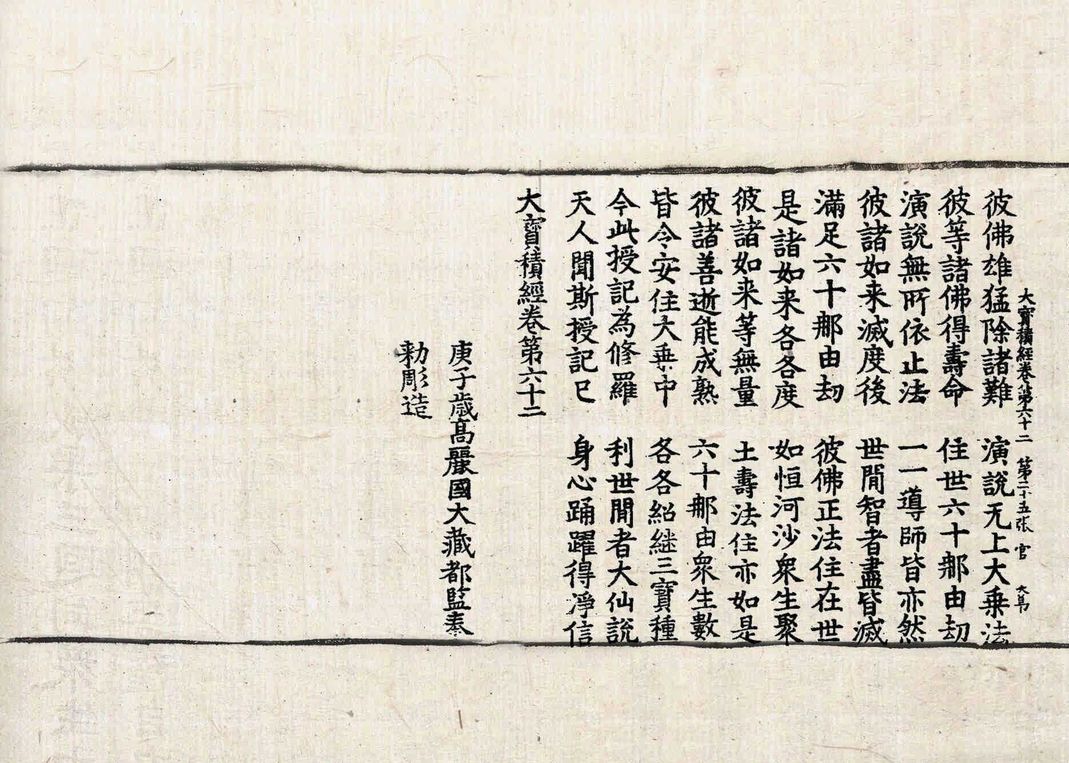 大寳積經卷第六十二 第二十五張 官
彼佛雄猛除諸難 演說无上大乗法
彼等諸佛得壽命 住世六十那由劫
演說無所依止法 一一導師皆亦然
彼諸如来滅度後 世間智者盡皆滅
滿足六十那由劫 彼佛正法住在世
是諸如来各各度 如恒河沙衆生聚
彼諸如来等無量 土壽法住亦如是
彼諸善逝能成熟 六十那由衆生數
皆令安住大乗中 各各紹継三寳種
今此授記為修羅 利世間者大仙說
天人聞斯授記已 身心踊躍得淨信
大寳積經卷第六十二
庚子歳高麗國大藏都監奉
勑彫造